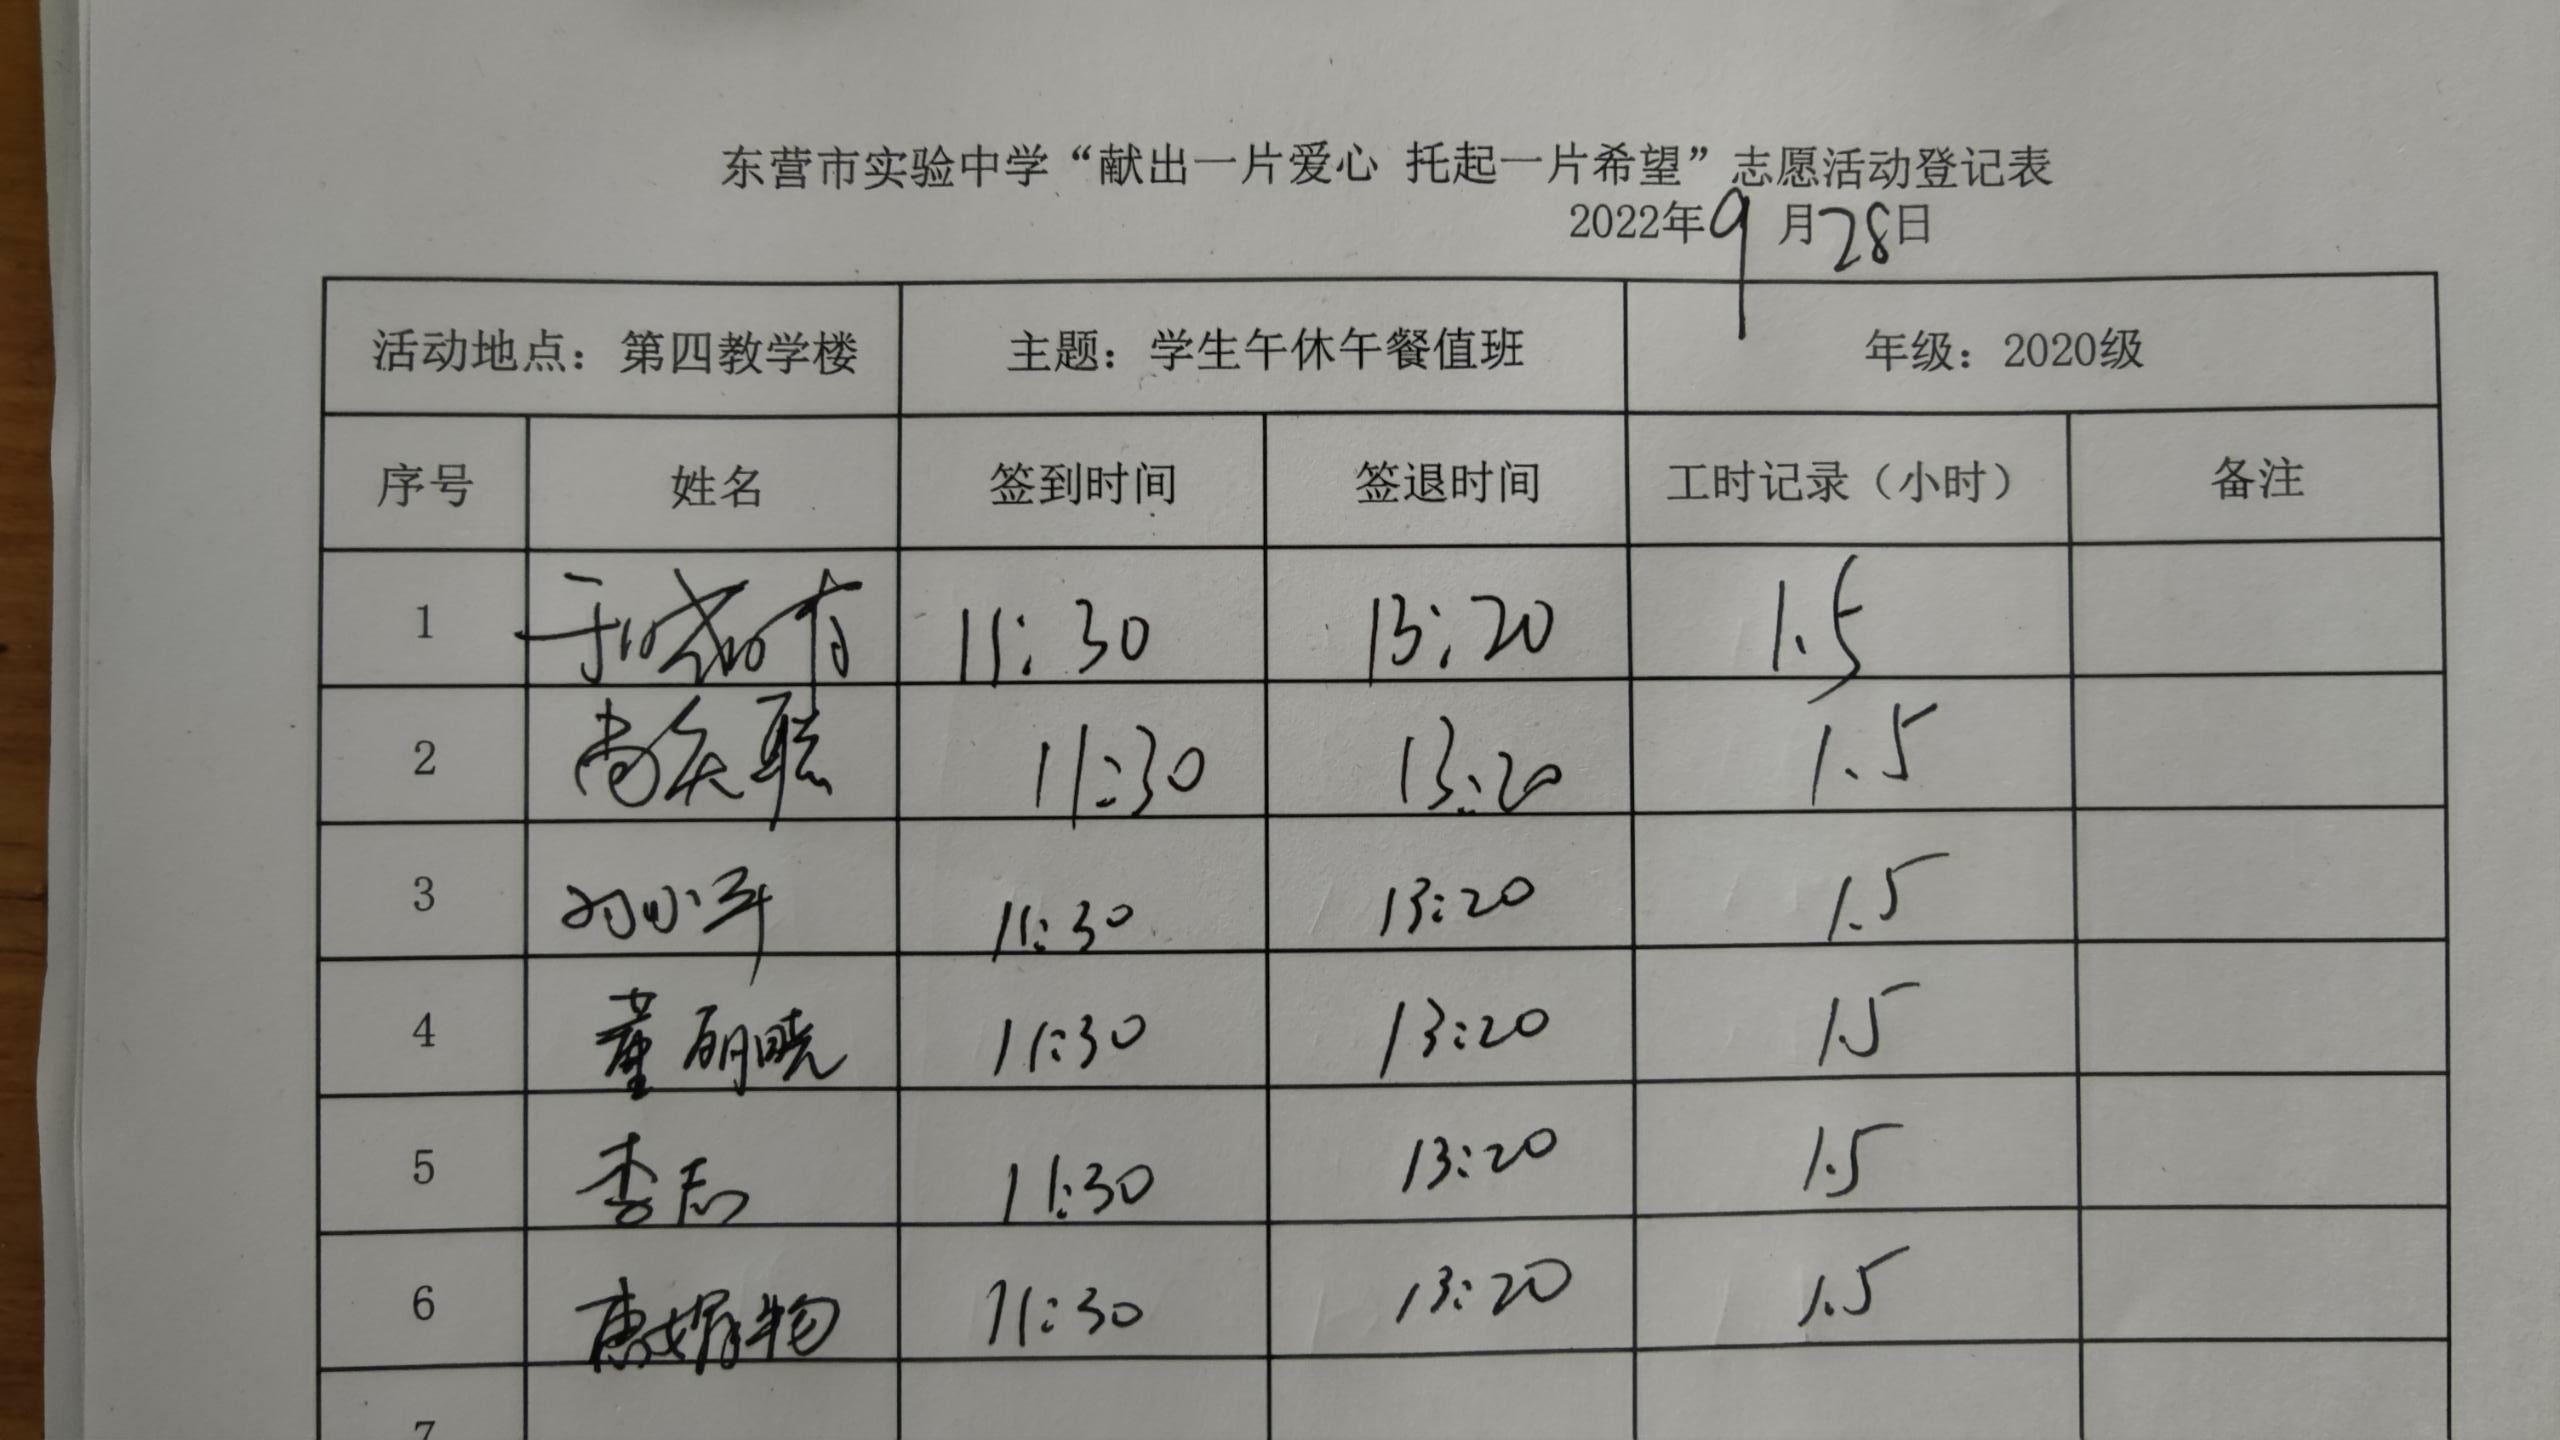 东营市实验中学“献出一片爱心 托起一片希望”志愿活动登记表
2022年9月28日
活动地点：第四教学楼 主题：学生午休午餐值班 年级：2020级
序号 姓名 签到时间 签退时间 工时记录（小时） 备注
1 11:30 13:20 1.5
2 11:30 13:20 1.5
3 11:30 13:20 1.5
4 董丽晓 11:30 13:20 1.5
5 李志 11:30 13:20 1.5
6 11:30 13:20 1.5
7